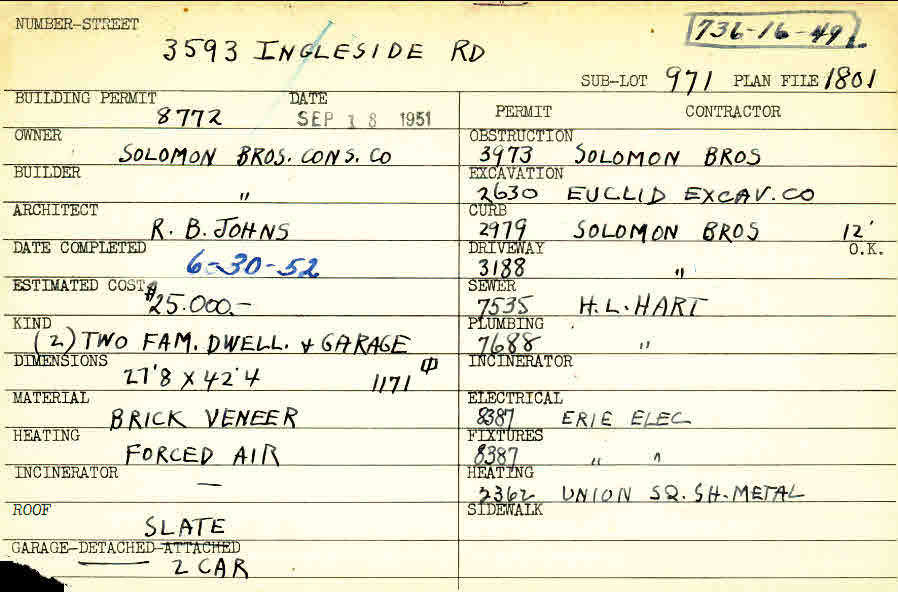 NUMBER-STREET
3593 INGLESIDE RD
736-16-49
SUB-LOT 971 PLAN FILE 1801
BUILDING PERMIT DATE
8772 SEP 18 1951
OWNER
SOLOMON BROS. CONS. CO
BUILDER
"
ARCHITECT
R. B. JOHNS
DATE COMPLETED
6-30-52
ESTIMATED COST
$25.000.-
KIND
(2) TWO FAM. DWELL. & GARAGE
DIMENSIONS
27'8 X 42'4 1171
MATERIAL
BRICK VENEER
HEATING
FORCED AIR
INCINERATOR
—
ROOF
SLATE
GARAGE-DETACHED-ATTACHED
2 CAR
PERMIT CONTRACTOR
OBSTRUCTION
3973 SOLOMON BROS
EXCAVATION
2630 EUCLID EXCAV. CO
CURB
2979 SOLOMON BROS 12'
DRIVEWAY O.K.
3188 "
SEWER
7535 H. L. HART
PLUMBING
7688 "
INCINERATOR
ELECTRICAL
8387 ERIE ELEC
FIXTURES
8387 " "
HEATING
2362 UNION SQ. SH. METAL
SIDEWALK